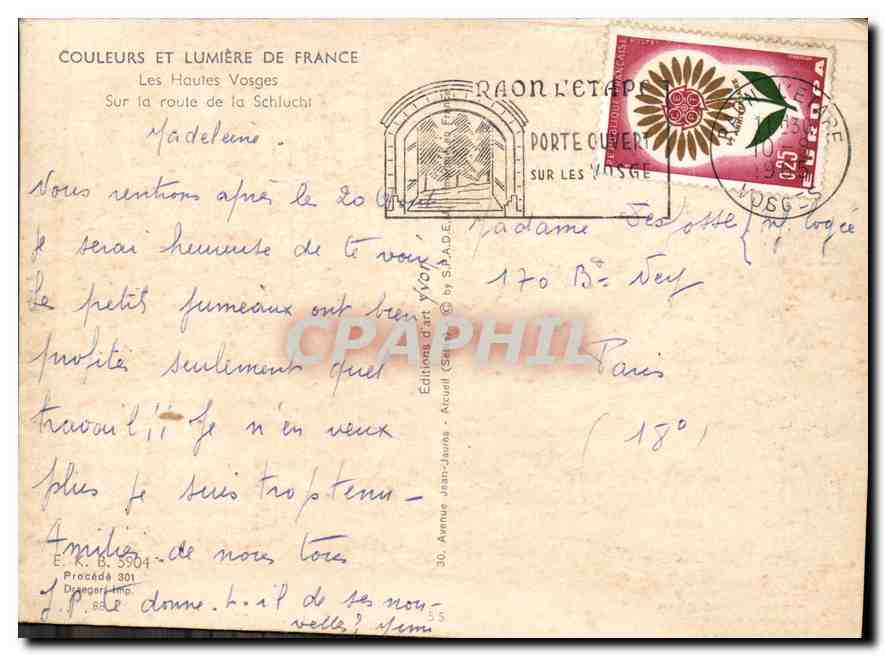 COULEURS ET LUMIÈRE DE FRANCE
Les Hautes Vosges
Sur la route de la Schlucht
Madeleine.
Nous rentrions après le 20
Je serai heureuse de te voir
Le petits jumeaux ont bien
profités seulement quel
travail !! Je n'en veux
plus je suis trop tenu -
Amitiés de nous tous
J.P. te donne-t-il de ses nou-
velles?
E. K. B. 5904
Procédé 301
Draeger, Imp.
55
30, Avenue Jean-Jaurès - Arcueil (Seine)
Éditions d'art Yvon
© by S.P.A.D.E.M.
RAON L'ETAPE
PORTE OUVERT
SUR LES VOSGE
REPUBLIQUE FRANÇAISE
POSTES
CEPT
0,25
EUROPA
VOSGES
Madame
170 Bd Ney
Paris
(18°)
CPAPHIL